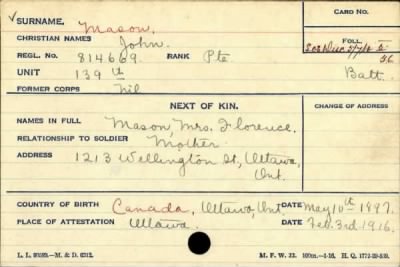 ✓ SURNAME, Mason. CARD NO.
CHRISTIAN NAMES John. FOLL.
REGL. NO. 814669 RANK Pte
UNIT 139th Batt.
FORMER CORPS Nil
NEXT OF KIN. CHANGE OF ADDRESS
NAMES IN FULL Mason, Mrs. Florence.
RELATIONSHIP TO SOLDIER Mother
ADDRESS 1213 Wellington St, Ottawa,
Ont.
COUNTRY OF BIRTH Canada, Ottawa, Ont. DATE May 10th 1897.
PLACE OF ATTESTATION Ottawa. DATE Feb. 3rd 1916.
L. L. 93039.—M. & D. 6312. M. F. W. 22. 100m.—1-16. H. Q. 1772-39-839.